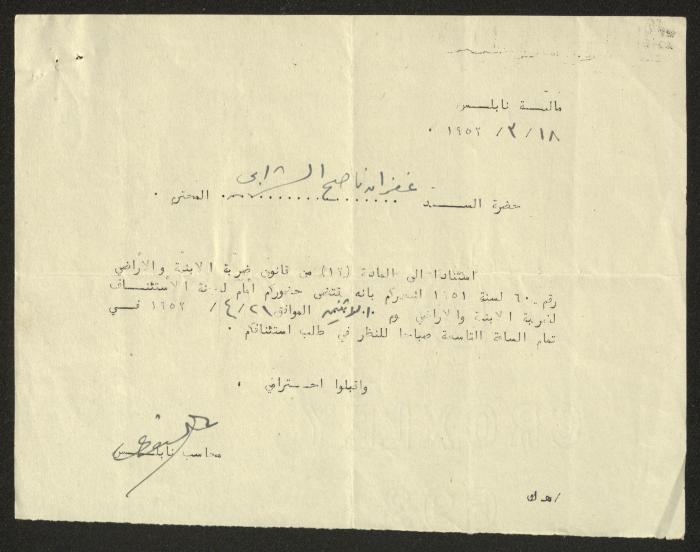 مالية نابلس
١٨ / ٣ / ١٩٥٢ .
حضرة الســـــد غفران ناصح الشرابي المحترم .
استنادا الى المادة (١٦) من قانون ضريبة الابنية والأراضي
رقم ٦٠ لسنة ١٩٥١ اشعركم بانه يقتضى حضوركم أمام لجنة الاستئنــاف
لضريبة الابنية والاراضي يوم الاثنين الموافق ٢١ / ٤ / ١٩٥٢ فــي
تمام الساعة التاسعة صباحا للنظر في طلب استئنافكم .
واقبلوا احــترامي .
محاسب نابلــس
/ هـ ك
CROXLEY